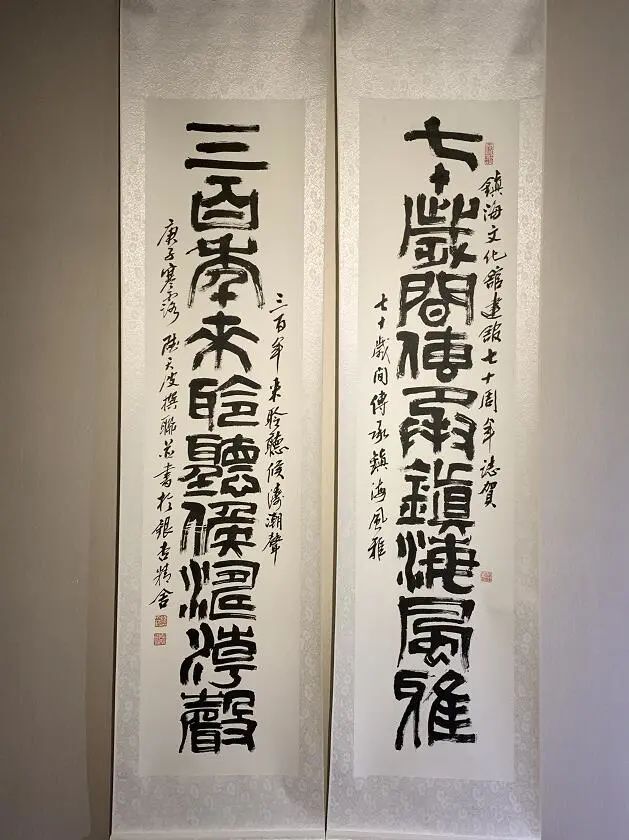 鎮海文化舘建舘七十周年誌賀
七十歲間傳承鎮海風雅
七十歲間傳承鎮海風雅
三百年來聆聽候濤潮聲
三百年來聆聽候濤潮聲
庚子寒露 陸天波撰聯並書於銀杏精舍